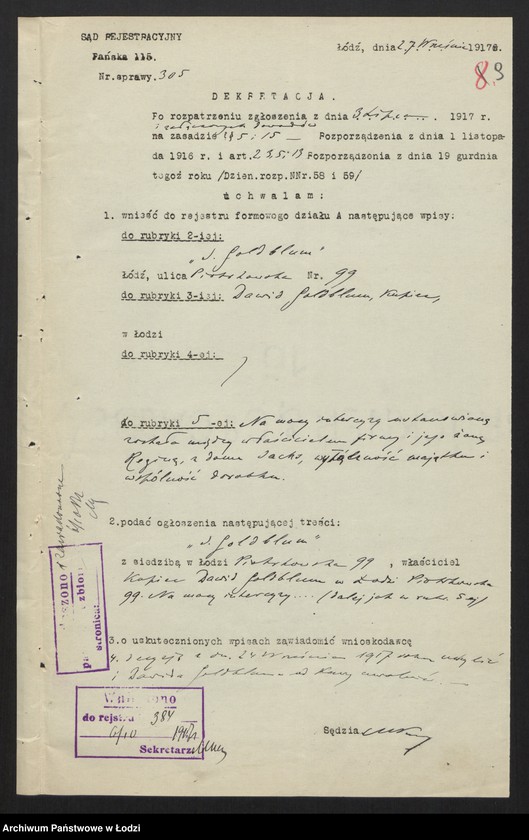 SĄD REJESTRACYJNY
Pańska 115.
Nr. sprawy. 305
Łódź, dnia 27 Września 1917r.
8. 9
DEKRETACJA.
Po rozpatrzeniu zgłoszenia z dnia 3 Lipca 1917 r.
i załączonych dowodów
na zasadzie §§ 5 i 15 — Rozporządzenia z dnia 1 listopa-
da 1916 r. i art. 2 Rozporządzenia z dnia 19 gurdnia
tegoż roku /Dzien.rozp.NNr.58 i 59/
uchwalam:
1. wnieść do rejestru formowego działu A następujące wpisy:
do rubryki 2-iej:
„ Goldblum"
Łódź, ulica Piotrkowska Nr. 99
do rubryki 3-iej: Dawid Goldblum, kupiec,
w Łodzi
do rubryki 4-ej:
do rubryki 5 -ej: Na mocy intercyzy ustanowioną
została między właścicielem firmy i jego żoną
Reginą, z domu Sachs, wyłączność majątku i
wspólność dorobku.
2.podać ogłoszenia następującej treści:
„ Goldblum"
z siedzibą w Łodzi Piotrkowska 99 , właściciel
Kupiec Dawid Goldblum w Łodzi Piotrkowska
99. Na mocy intercyzy .... (dalej jak w rubr. 5 ej)
3.o uskutecznionych wpisach zawiadomić wnioskodawcę
4. z dn. 24 Września 1917
i Dawida Goldbluma od kary uwolnić.
Sędzia
Wniesiono
do rejstru 384
6/10 1917r.
Sekretarz
stronica:
Archiwum Państwowe w Łodzi